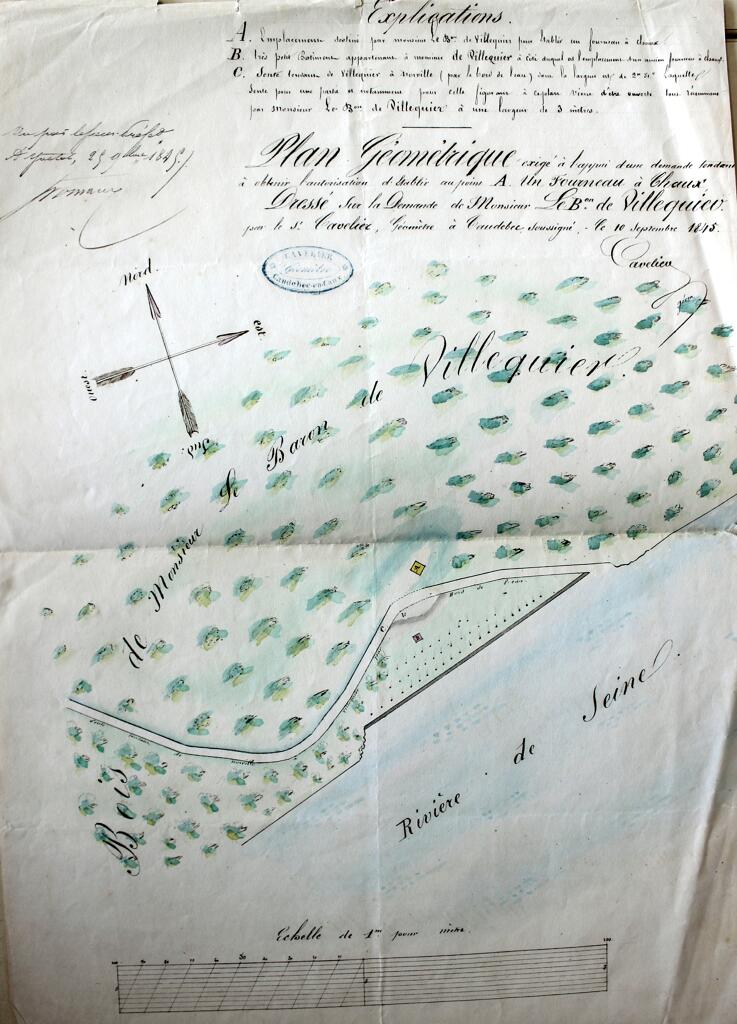 Explications.
A. Emplacement destiné par monsieur Le Bon de Villequier pour établir un fourneau à chaux
B. très petit Batiment appartenant à monsieur de Villequier à côté duquel est l'emplacement d'un ancien fourneau à chaux.
C. Sente tendant de Villequier à Norville (par le bord de l'eau) dont la largeur est de
Sente pour une partie et notamment pour celle figurant à ce plan vient d'être ouverte
par Monsieur Le Bon de Villequier à une largeur de 3 mètres.
Plan Géométrique exigé à l'appui d'une demande tendant
à obtenir l'autorisation d'établir au point A. Un Fourneau à Chaux
Dressé Sur la Demande de Monsieur Le Bon de Villequier
par le Sr Cavelier, Géomètre à Caudebec, soussigné, Le 10 Septembre 1845.
Cavelier
CAVELIER
Géomètre
Caudebec-en-Caux
Nord.
est.
ouest.
Sud.
Bois de Monsieur Le Baron de Villequier.
A
Bord de l'eau
C
B
Rivière de Seine.
Echelle de 1mm pour mètre.